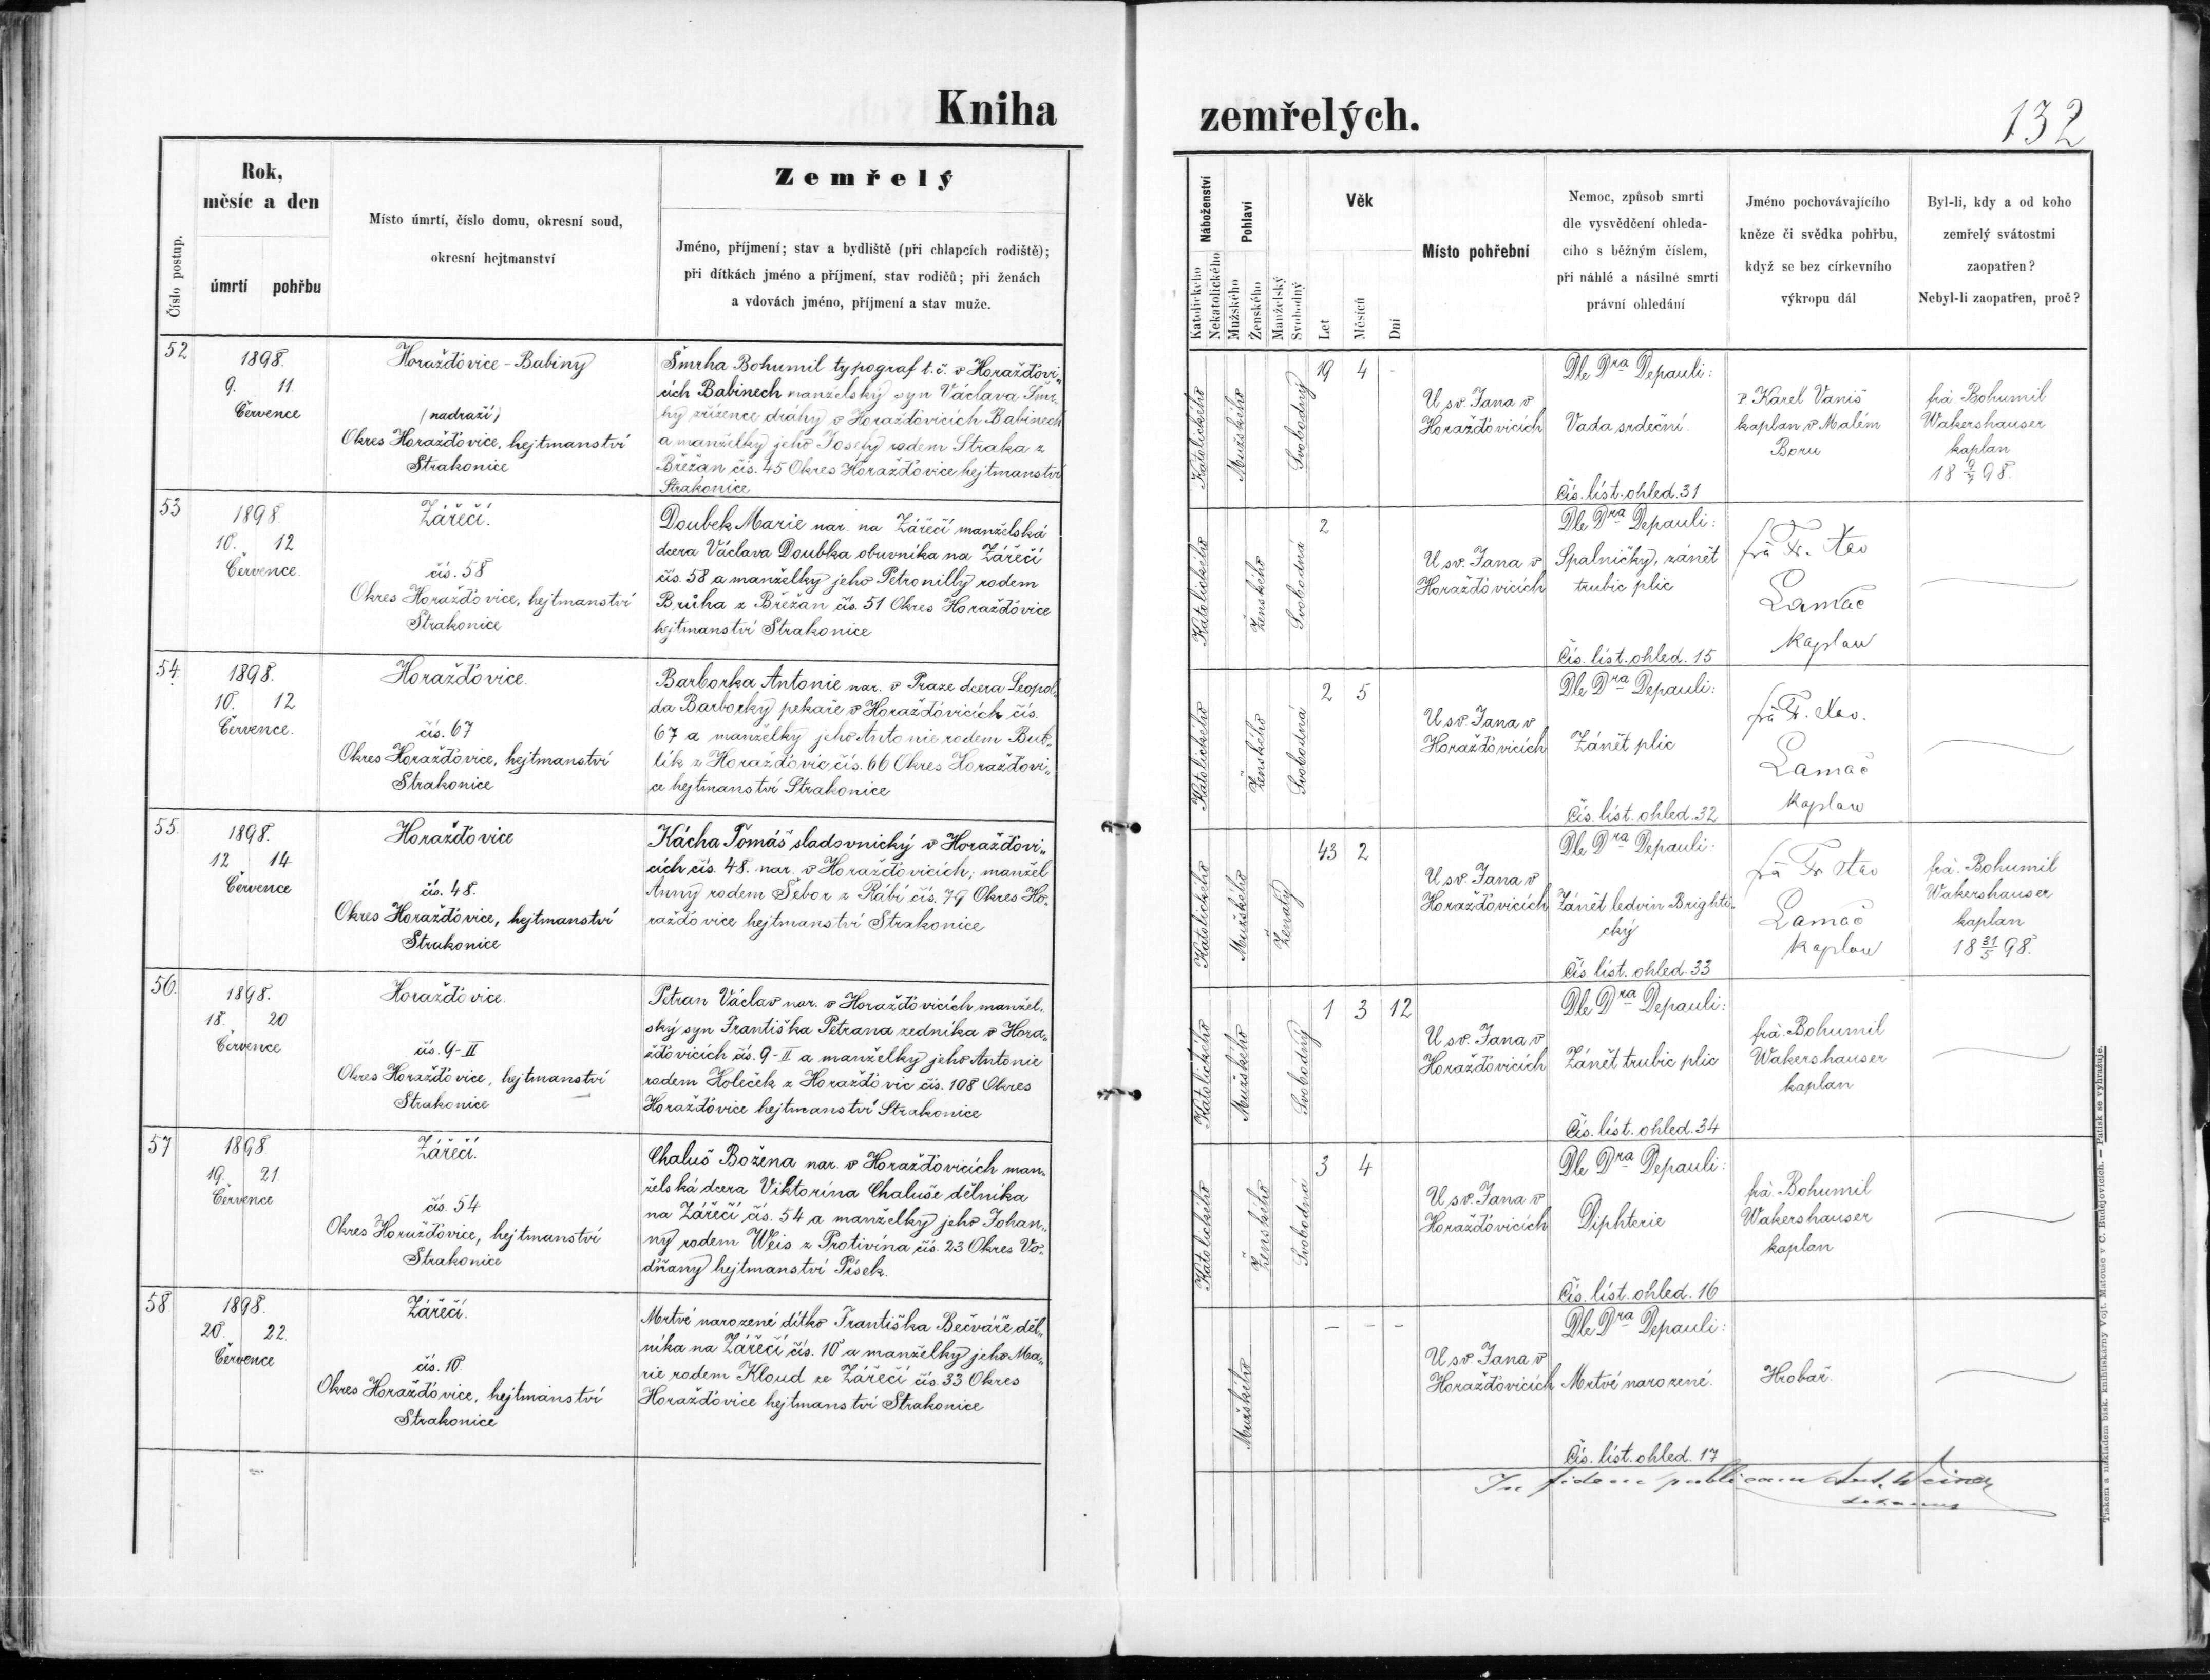 Kniha zemřelých.
132
Číslo postup.
Rok,
měsíc a den
úmrtí pohřbu
Místo úmrtí, číslo domu, okresní soud,
okresní hejtmanství
Zemřelý
Jméno, příjmení; stav a bydliště (při chlapcích rodiště);
při dítkách jméno a příjmení, stav rodičů; při ženách
a vdovách jméno, příjmení a stav muže.
Náboženství
Katolického
Nekatolického
Pohlaví
Mužského
Ženského
Manželský
Svobodný
Věk
Let
Měsíců
Dní
Místo pohřební
Nemoc, způsob smrti
dle vysvědčení ohleda-
cího s běžným číslem,
při náhlé a násilné smrti
právní ohledání
Jméno pochovávajícího
kněze či svědka pohřbu,
když se bez církevního
výkropu dál
Byl-li, kdy a od koho
zemřelý svátostmi
zaopatřen?
Nebyl-li zaopatřen, proč?
52
1898.
9. 11
Července
Horažďovice - Babiny
(nadraží)
Okres Horažďovice, hejtmanství
Strakonice
Šmrha Bohumil typograf t.č. v Horažďovi„
cích Babinech manželský syn Václava Šmr-
hy zřízence dráhy v Horažďovicích Babinech
a manželky jeho Josefy rodem Straka z
Břežan čís. 45 Okres Horažďovice hejtmanství
Strakonice
Katolického
Mužského
Svobodný
19 4 -
U sv. Jana v
Horažďovicích
Dle Dra Depauli:
Vada srdeční.
Čís. líst. ohled. 31
P Karel Vaniš
kaplan v Malém
Boru
frá. Bohumil
Wakershauser
kaplan
18 9/7 98.
53
1898.
10. 12
Července.
Zářečí.
čís. 58
Okres Horažďovice, hejtmanství
Strakonice
Doubek Marie nar. na Zářečí manželská
dcera Václava Doubka obuvníka na Zářečí
čís. 58 a manželky jeho Petronilly rodem
Brůha z Břežan čís. 51 Okres Horažďovice
hejtmanství Strakonice
Katolického
Ženského
Svobodná
2
U sv. Jana v
Horažďovicích
Dle Dra Depauli:
Spalničky, zánět
trubic plic
Čís. líst. ohled. 15
frá Fr. Xav
Lamač
kaplan
54.
1898.
10. 12
Července.
Horažďovice.
čís. 67
Okres Horažďovice, hejtmanství
Strakonice
Barborka Antonie nar. v Praze dcera Leopol„
da Barborky pekaře v Horažďovicích čís.
67 a manželky jeho Antonie rodem But„
lík z Horažďovic čís. 66 Okres Horažďovi„
ce hejtmanství Strakonice
Katolického
Ženského
Svobodná
2 5
U sv. Jana v
Horažďovicích
Dle Dra Depauli:
Zánět plic
Čís. líst. ohled. 32
frá Fr. Xav.
Lamač
kaplan
55.
1898.
12 14
Července
Horažďovice
čís. 48.
Okres Horažďovice, hejtmanství
Strakonice
Kácha Tomáš sladovnický v Horažďovi„
cích čís. 48. nar. v Horažďovicích; manžel
Anny rodem Šebor z Rábí čís. 79 Okres Ho„
ražďovice hejtmanství Strakonice
Katolického
Mužského
Ženatý
43 2
U sv. Jana v
Horažďovicích
Dle Dra Depauli:
Zánět ledvin Brighti„
cký
Čís líst. ohled. 33
frá Fr Xav
Lamač
kaplan
frá. Bohumil
Wakershauser
kaplan
18 31/5 98.
56.
1898.
18. 20
Července
Horažďovice.
čís. 9-II
Okres Horažďovice, hejtmanství
Strakonice
Petran Václav nar. v Horažďovicích manžel„
ský syn Františka Petrana zedníka v Hora„
žďovicích čís. 9-II a manželky jeho Antonie
rodem Holeček z Horažďovic čís. 108 Okres
Horažďovice hejtmanství Strakonice
Katolického
Mužského
Svobodný
1 3 12
U sv. Jana v
Horažďovicích
Dle Dra Depauli:
Zánět trubic plic
Čís. líst. ohled. 34
frá. Bohumil
Wakershauser
kaplan
57
1898.
19. 21.
Července
Zářečí.
čís. 54
Okres Horažďovice, hejtmanství
Strakonice
Chaluš Božena nar. v Horažďovicích man„
želská dcera Viktorina Chaluše dělníka
na Zářečí čís. 54 a manželky jeho Johan„
ny rodem Weis z Protivína čís. 23 Okres Vo„
dňany hejtmanství Písek.
Katolického
Ženského
Svobodná
3 4
U sv. Jana v
Horažďovicích
Dle Dra Depauli:
Diphterie
Čís. líst. ohled. 16
frá. Bohumil
Wakershauser
kaplan
58
1898.
20. 22.
Července
Zářečí.
čís. 10.
Okres Horažďovice, hejtmanství
Strakonice
Mrtvě narozené dítko Františka Bečváře děl„
níka na Zářečí čís. 10 a manželky jeho Ma„
rie rodem Kloud ze Zářečí čís. 33 Okres
Horažďovice hejtmanství Strakonice
Mužského
- - -
U sv. Jana v
Horažďovicích
Dle Dra Depauli:
Mrtvě narozené.
Čís. líst. ohled. 17
Hrobař.
In fidem publicam Ant. Weiner
Tiskem a nákladem bisk. knihtiskárny Vojt. Matouše v Č. Budějovicích. — Patisk se vyhražuje.